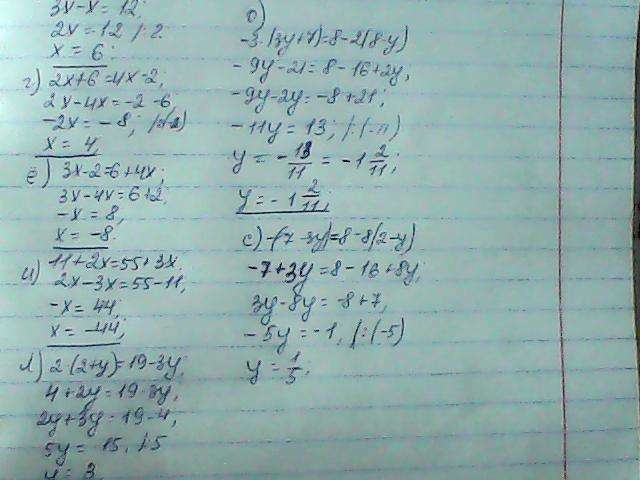 3x-x=12;
2x=12 /:2
x=6.
г) 2x+6=4x-2;
2x-4x=-2-6,
-2x=-8;
x=4,
ё) 3x-2=6+4x;
3x-4x=6+2,
-x=8,
x=-8.
и) 11+2x=55+3x.
2x-3x=55-11,
-x=44,
x=-44,
л) 2(2+y)=19-3y,
4+2y=19-3y,
2y+3y=19-4,
5y=15, /:5
y=3,
о)
-3(3y+7)=8-2(8-y)
-9y-21=8-16+2y,
-9y-2y=-8+21,
-11y=13, /:(-11)
y=-13/11=-1 2/11;
y=-1 2/11;
с) -(7-3y)=8-8(2-y)
-7+3y=8-16+8y,
3y-8y=-8+7,
-5y=-1, /:(-5)
y=1/5;